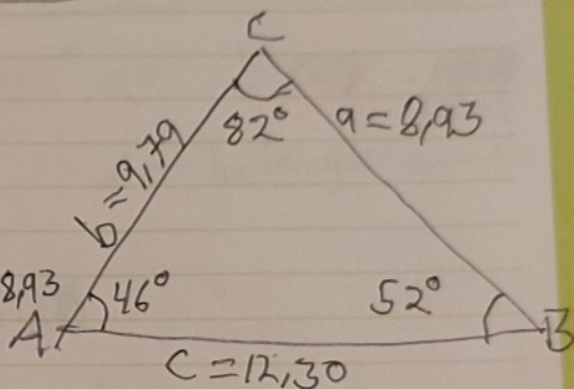 C
82°
a=8,93
b=9,79
8,93
46°
52°
A
B
C=12,30